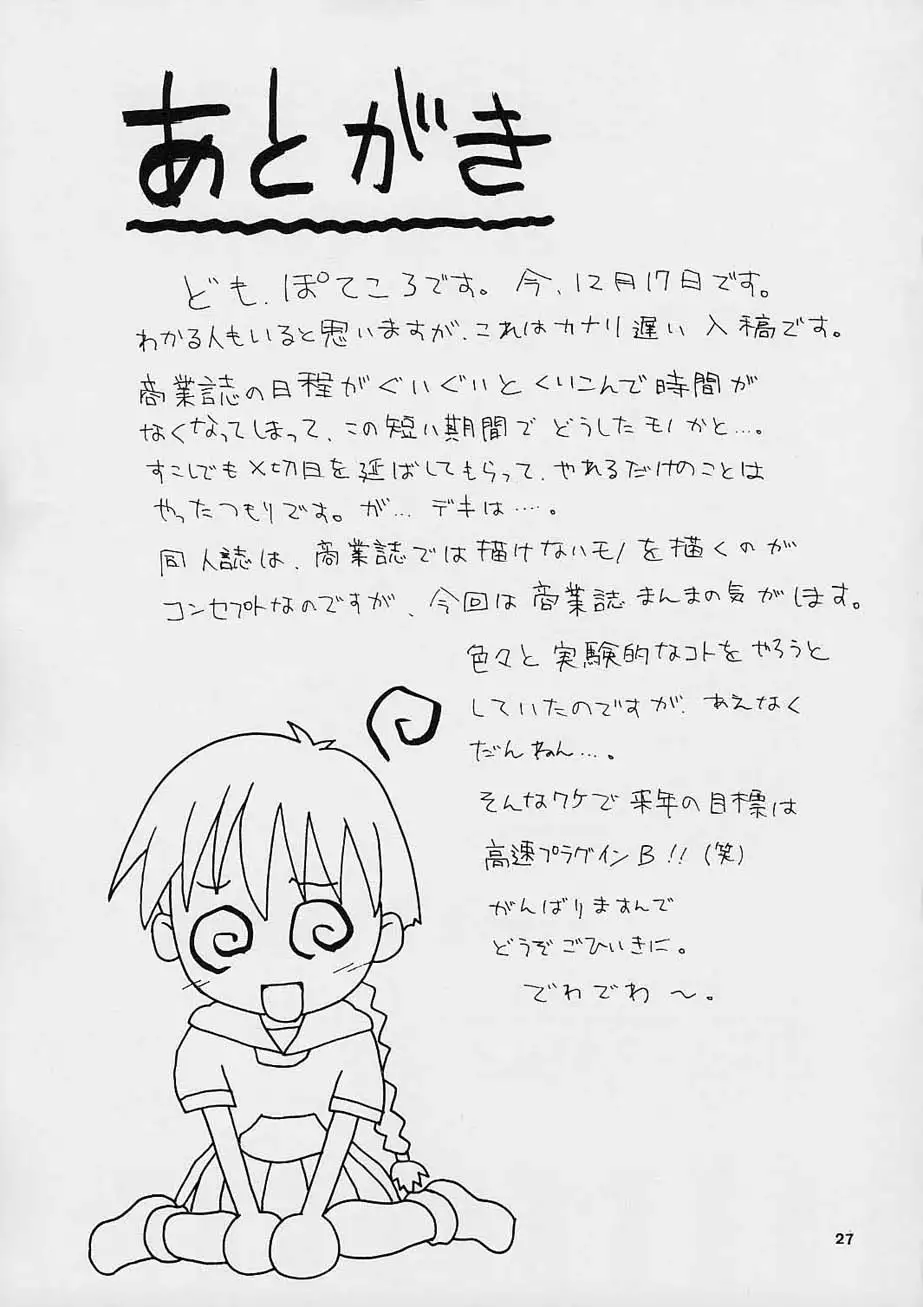 あとがき
ども、ぽてころです。今、12月17日です。
わかる人もいると思いますが、これはカナリ遅い入稿です。
商業誌の日程がぐいぐいとくいこんで時間が
なくなってしまって、この短い期間でどうしたモノかと…。
すこしでも〆切日を延ばしてもらって、やれるだけのことは
やったつもりです。が…デキは……。
同人誌は、商業誌では描けないモノを描くのが
コンセプトなのですが、今回は商業誌まんまの気がします。
色々と実験的なコトをやろうと
していたのですが、あえなく
だんねん…。
そんなワケで来年の目標は
高速プラグインB!!(笑)
がんばりますんで
どうぞごひいきに。
でわでわ〜。
27